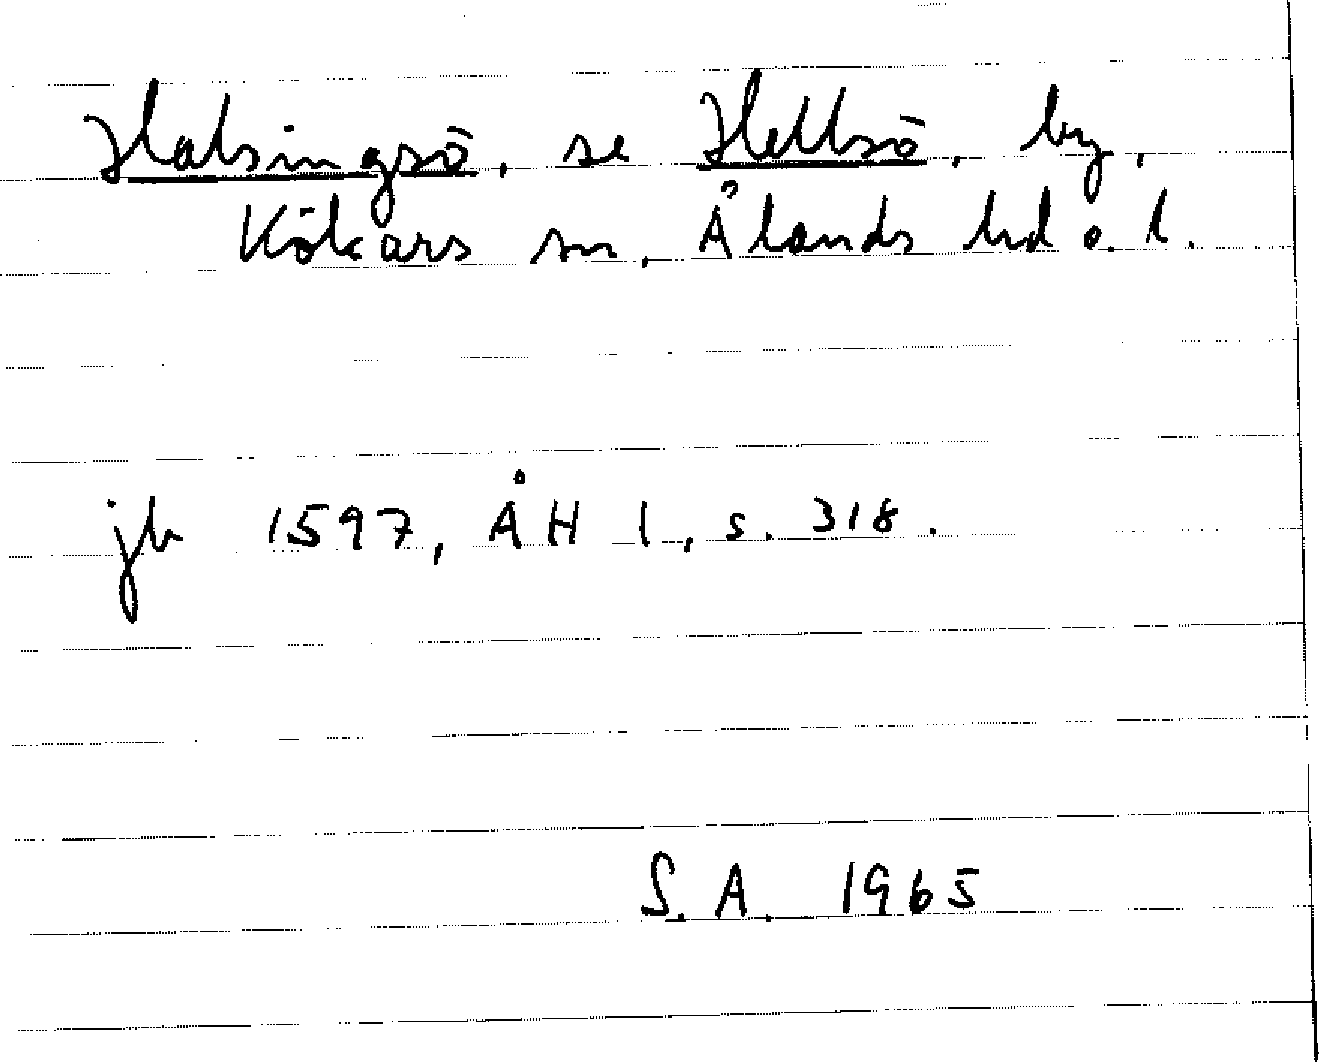 Halsingsö, se Hellsö, by,
Kökars sn, Ålands hd o. l.
jb 1597, ÅH 1, s. 318.
S. A. 1965